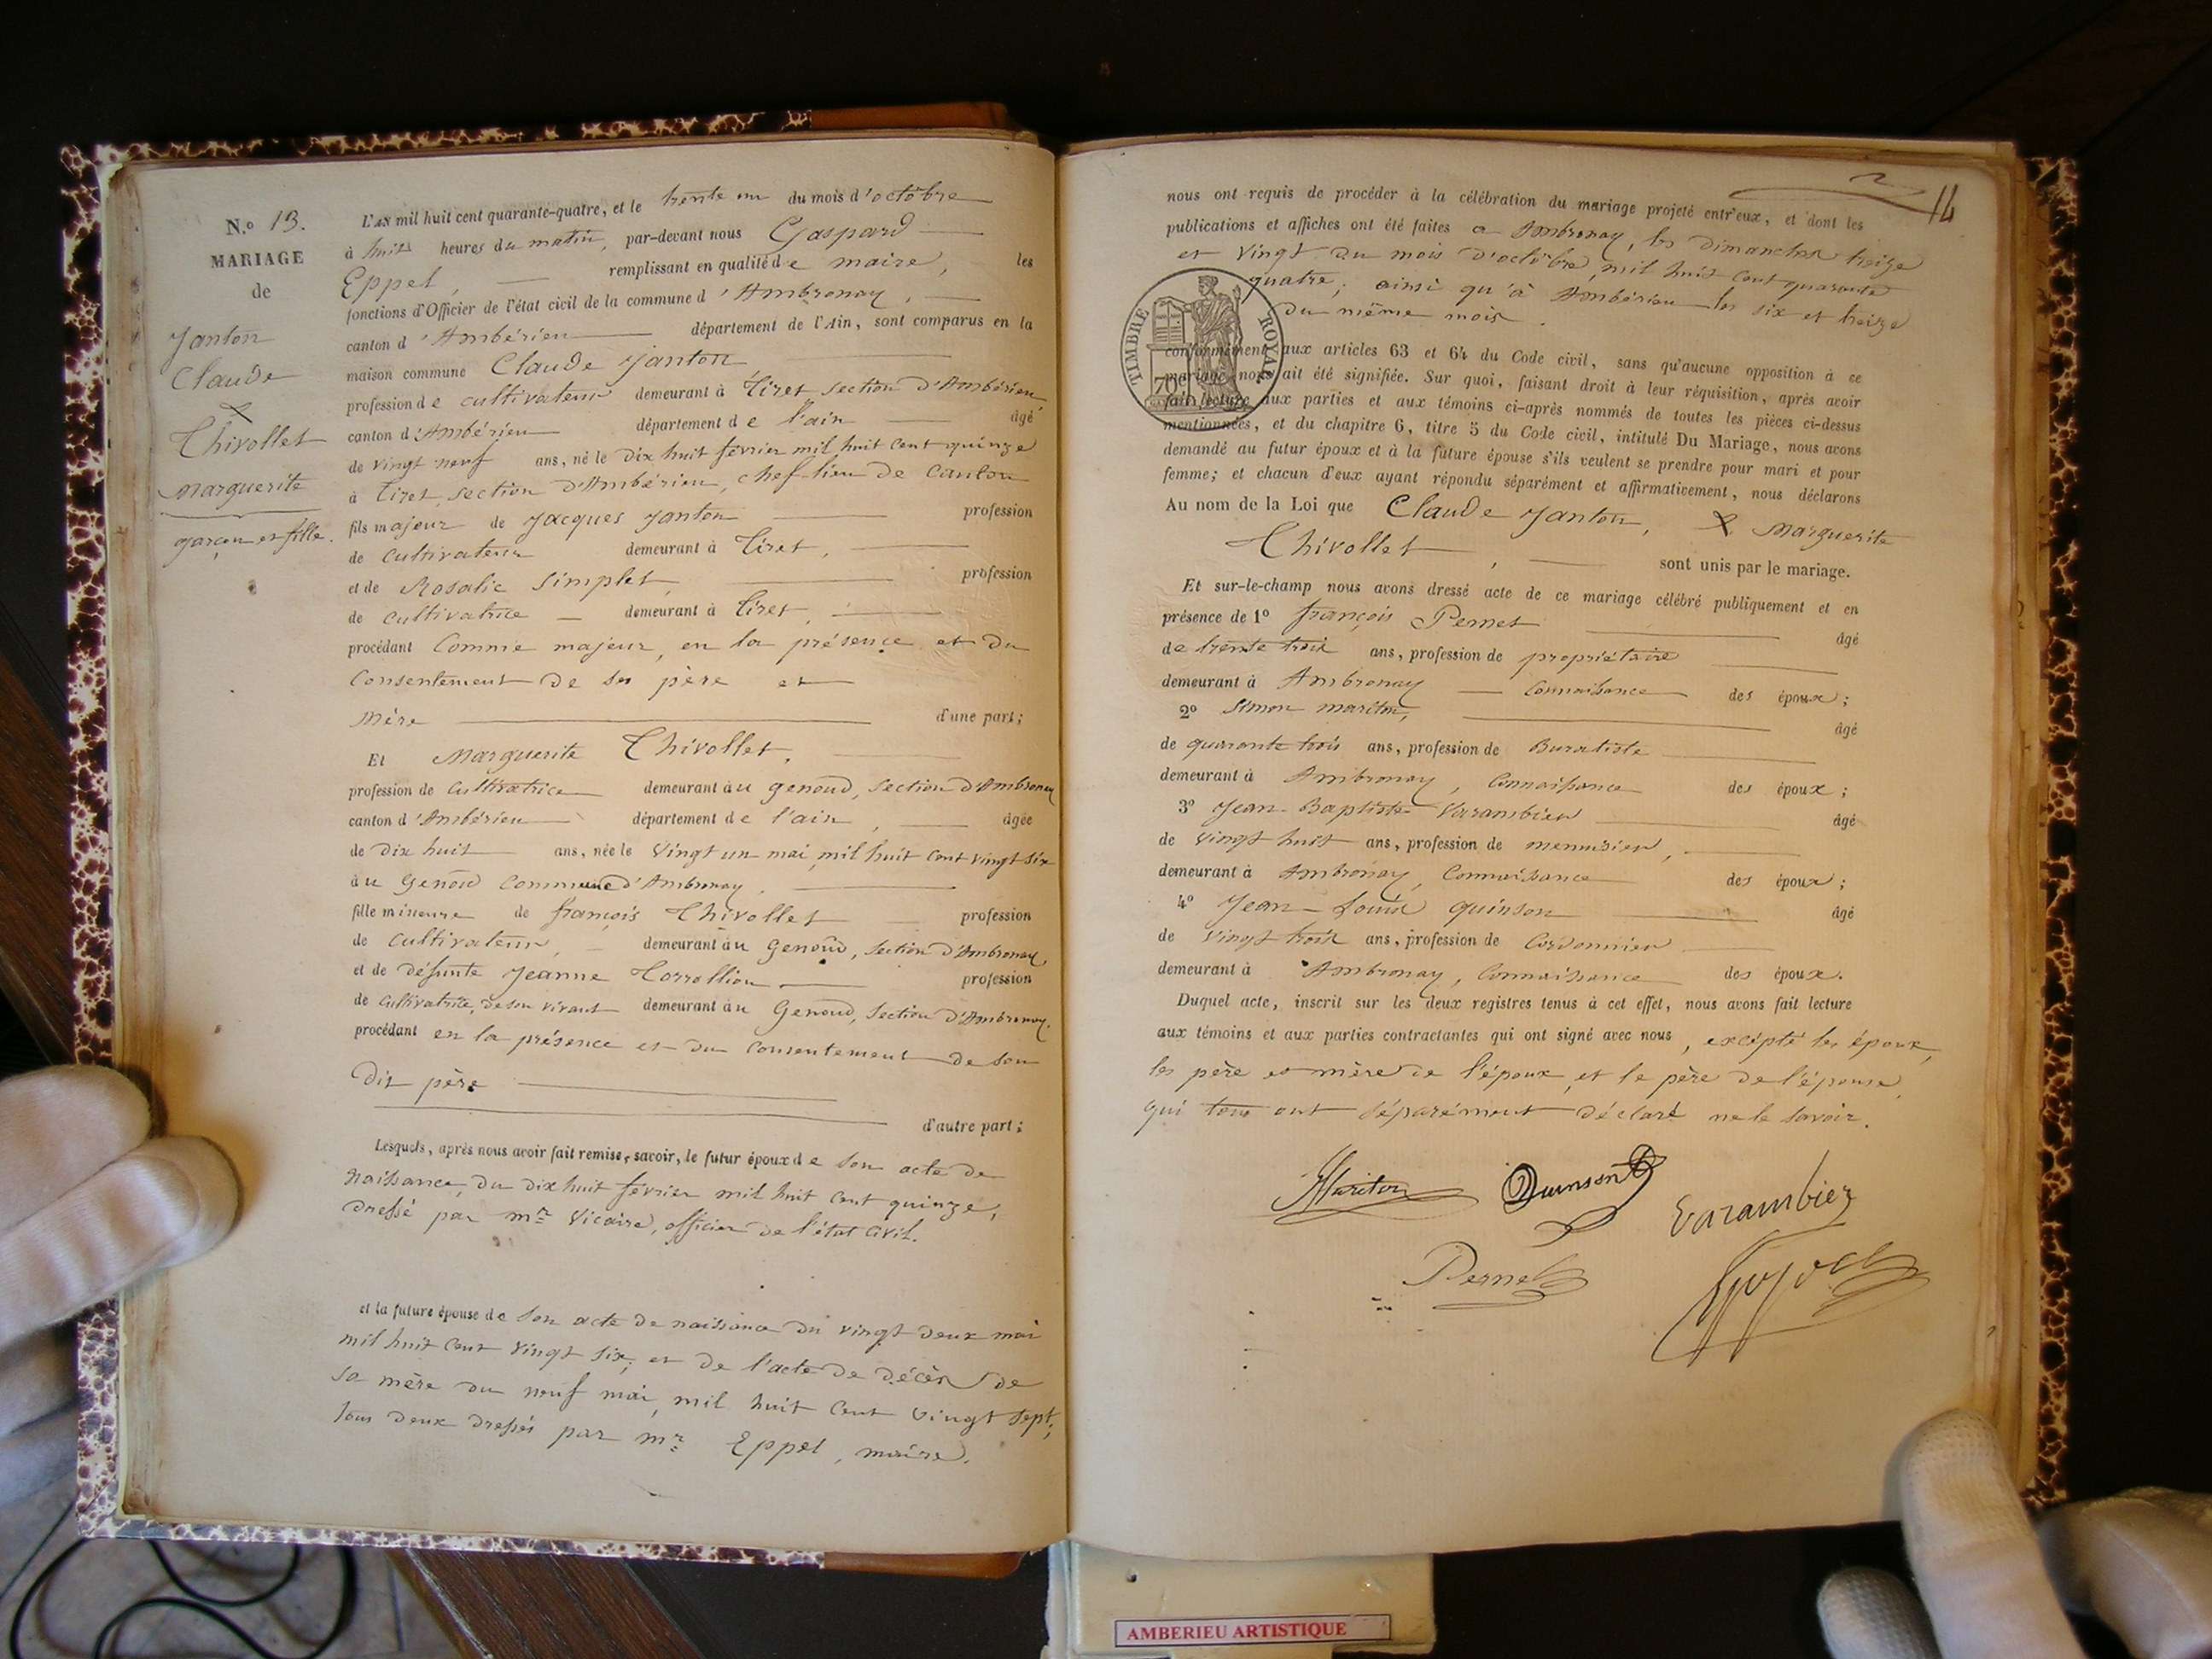 N.o 13.
MARIAGE
de
Janton
Claude
&
Thivollet
Marguerite
garçon et fille.
L'AN mil huit cent quarante-quatre, et le trente un du mois d'octobre
à huit heures du matin, par-devant nous Gaspard
Eppel, remplissant en qualité de maire, les
fonctions d'Officier de l'état civil de la commune d'Ambronay,
canton d'Ambérieu département de l'Ain, sont comparus en la
maison commune Claude Janton
profession de cultivateur demeurant à Tiret section d'Ambérieu,
canton d'Ambérieu département de l'ain âgé
de vingt neuf ans, né le dix huit février mil huit cent quinze
à Tiret, section d'Ambérieu, chef-lieu de canton
fils majeur de Jacques Janton profession
de cultivateur demeurant à Tiret,
et de Rosalie Simplet profession
de cultivatrice demeurant à Tiret,
procédant comme majeur, en la présence et du
consentement de ses père et
mère d'une part;
Et Marguerite Thivollet,
profession de cultivatrice demeurant au genoud, section d'Ambronay
canton d'Ambérieu département de l'ain, âgée
de dix huit ans, née le vingt un mai mil huit cent vingt six
au Genoud commune d'Ambronay.
fille mineure de françois Thivollet profession
de cultivateur demeurant au Genoud, section d'Ambronay,
et de défunte Jeanne Torrollion profession
de cultivatrice, de son vivant demeurant au Genoud, section d'Ambronay.
procédant en la présence et du consentement de son
dit père
d'autre part;
Lesquels, après nous avoir fait remise, savoir, le futur époux de son acte de
naissance, du dix huit février mil huit cent quinze,
dressé par mr Vicaire, officier de l'état civil.
et la future épouse de son acte de naissance du vingt deux mai
mil huit cent vingt six, et de l'acte de décès de
sa mère du neuf mai, mil huit cent vingt sept;
tous deux dressés par mr Eppel, maire.
14
nous ont requis de procéder à la célébration du mariage projeté entr'eux, et dont les
publications et affiches ont été faites à Ambronay, les dimanches treize
et vingt du mois d'octobre, mil huit cent quarante
quatre; ainsi qu'à Ambérieu les six et treize
du même mois.
TIMBRE ROYAL
70
conformément aux articles 63 et 64 du Code civil, sans qu'aucune opposition à ce
mariage nous ait été signifiée. Sur quoi, faisant droit à leur réquisition, après avoir
fait lecture aux parties et aux témoins ci-après nommés de toutes les pièces ci-dessus
mentionnées, et du chapitre 6, titre 5 du Code civil, intitulé Du Mariage, nous avons
demandé au futur époux et à la future épouse s'ils veulent se prendre pour mari et pour
femme; et chacun d'eux ayant répondu séparément et affirmativement, nous déclarons
Au nom de la Loi que Claude Janton, & Marguerite
Thivollet, sont unis par le mariage.
Et sur-le-champ nous avons dressé acte de ce mariage célébré publiquement et en
présence de 1o françois Pernet âgé
de trente trois ans, profession de propriétaire
demeurant à Ambronay connaissance des époux;
2o Simon mariton, âgé
de quarante trois ans, profession de Buraliste
demeurant à Ambronay, connaissance des époux;
3o Jean-Baptiste Varambier âgé
de vingt huit ans, profession de menuisier,
demeurant à Ambronay, connaissance des époux;
4o Jean-Louis quinson âgé
de vingt trois ans, profession de cordonnier
demeurant à Ambronay, connaissance des époux.
Duquel acte, inscrit sur les deux registres tenus à cet effet, nous avons fait lecture
aux témoins et aux parties contractantes qui ont signé avec nous, excepté les époux,
les père et mère de l'époux, et le père de l'épouse,
qui tous ont séparément déclaré ne le savoir.
Mariton Quinson Varambier
Pernet
AMBERIEU ARTISTIQUE